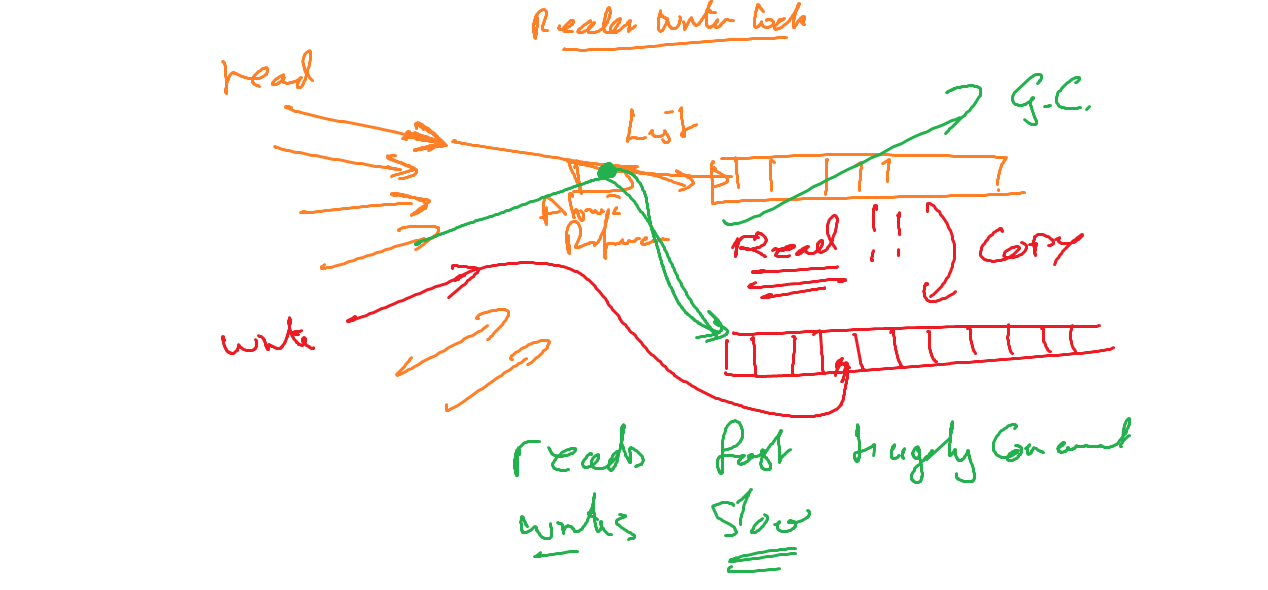 Reader Writer Lock
read
G.C.
List
Atomic
Reference
Read !!
Copy
write
reads fast highly Concurrent
writes slow